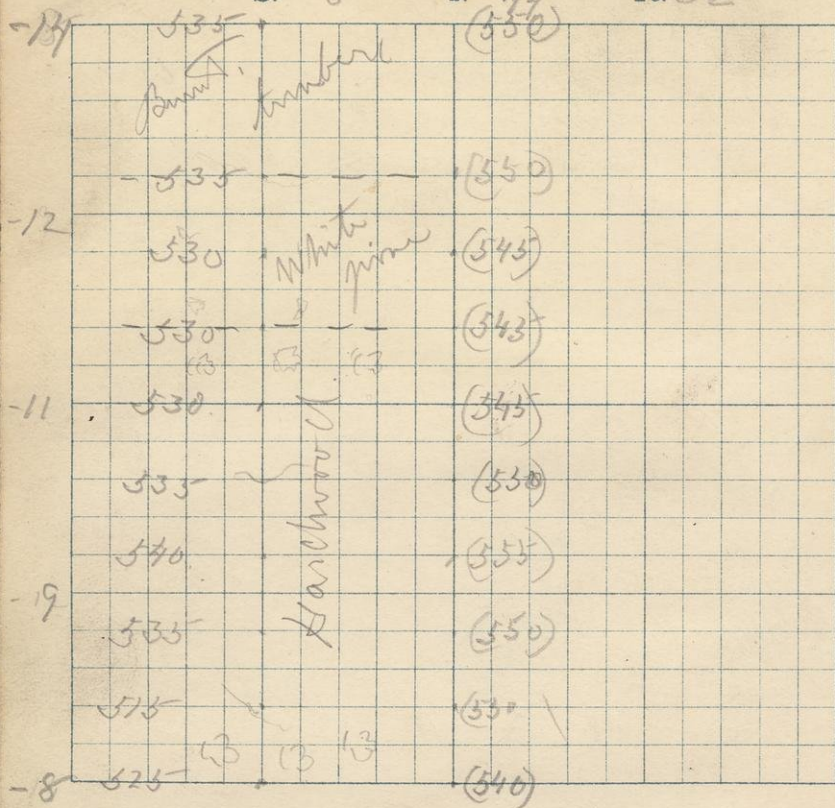 -14 535 (550)
Burnt timber
535 (550)
-12
530 White pine (545)
530 (545)
-11 530 (545)
535 (550)
Hardwood
540 (555)
-9
535 (550)
515 (530)
-8 525 (540)